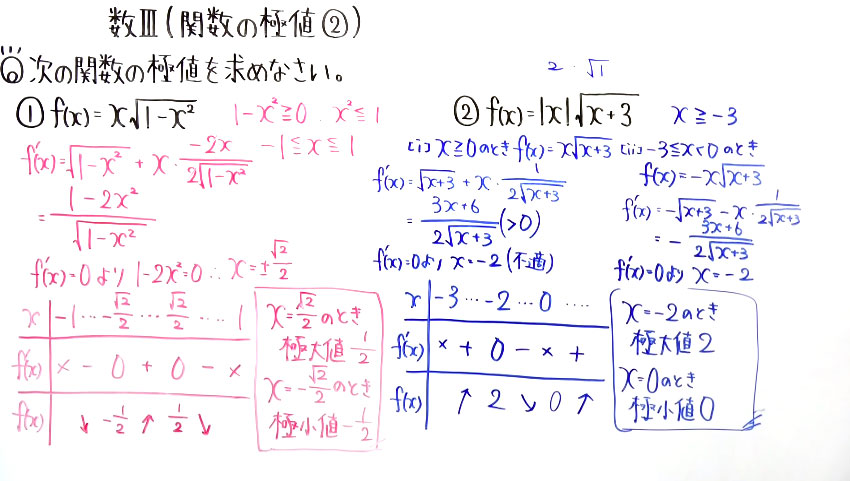 数Ⅲ(関数の極値②)
⑥次の関数の極値を求めなさい。
2・√1
① f(x)=x√1-x²
1-x²≧0 x²≦1
-1≦x≦1
f'(x)=√1-x² + x・-2x/2√1-x²
=1-2x²/√1-x²
f'(x)=0より 1-2x²=0 ∴x=±√2/2
x -1 … -√2/2 … √2/2 … 1
f'(x) × - 0 + 0 - ×
f(x) ↓ -1/2 ↑ 1/2 ↓
x=√2/2のとき
極大値 1/2
x=-√2/2のとき
極小値 -1/2
② f(x)=|x|√x+3
x≧-3
(i) x≧0のとき f(x)=x√x+3
f'(x)=√x+3 + x・1/2√x+3
=3x+6/2√x+3 (>0)
f'(x)=0より x=-2(不適)
(ii) -3≦x<0のとき
f(x)=-x√x+3
f'(x)=-√x+3 - x・1/2√x+3
=-3x+6/2√x+3
f'(x)=0より x=-2
x -3 … -2 … 0 …
f'(x) × + 0 - × +
f(x) ↑ 2 ↘ 0 ↑
x=-2のとき
極大値2
x=0のとき
極小値0